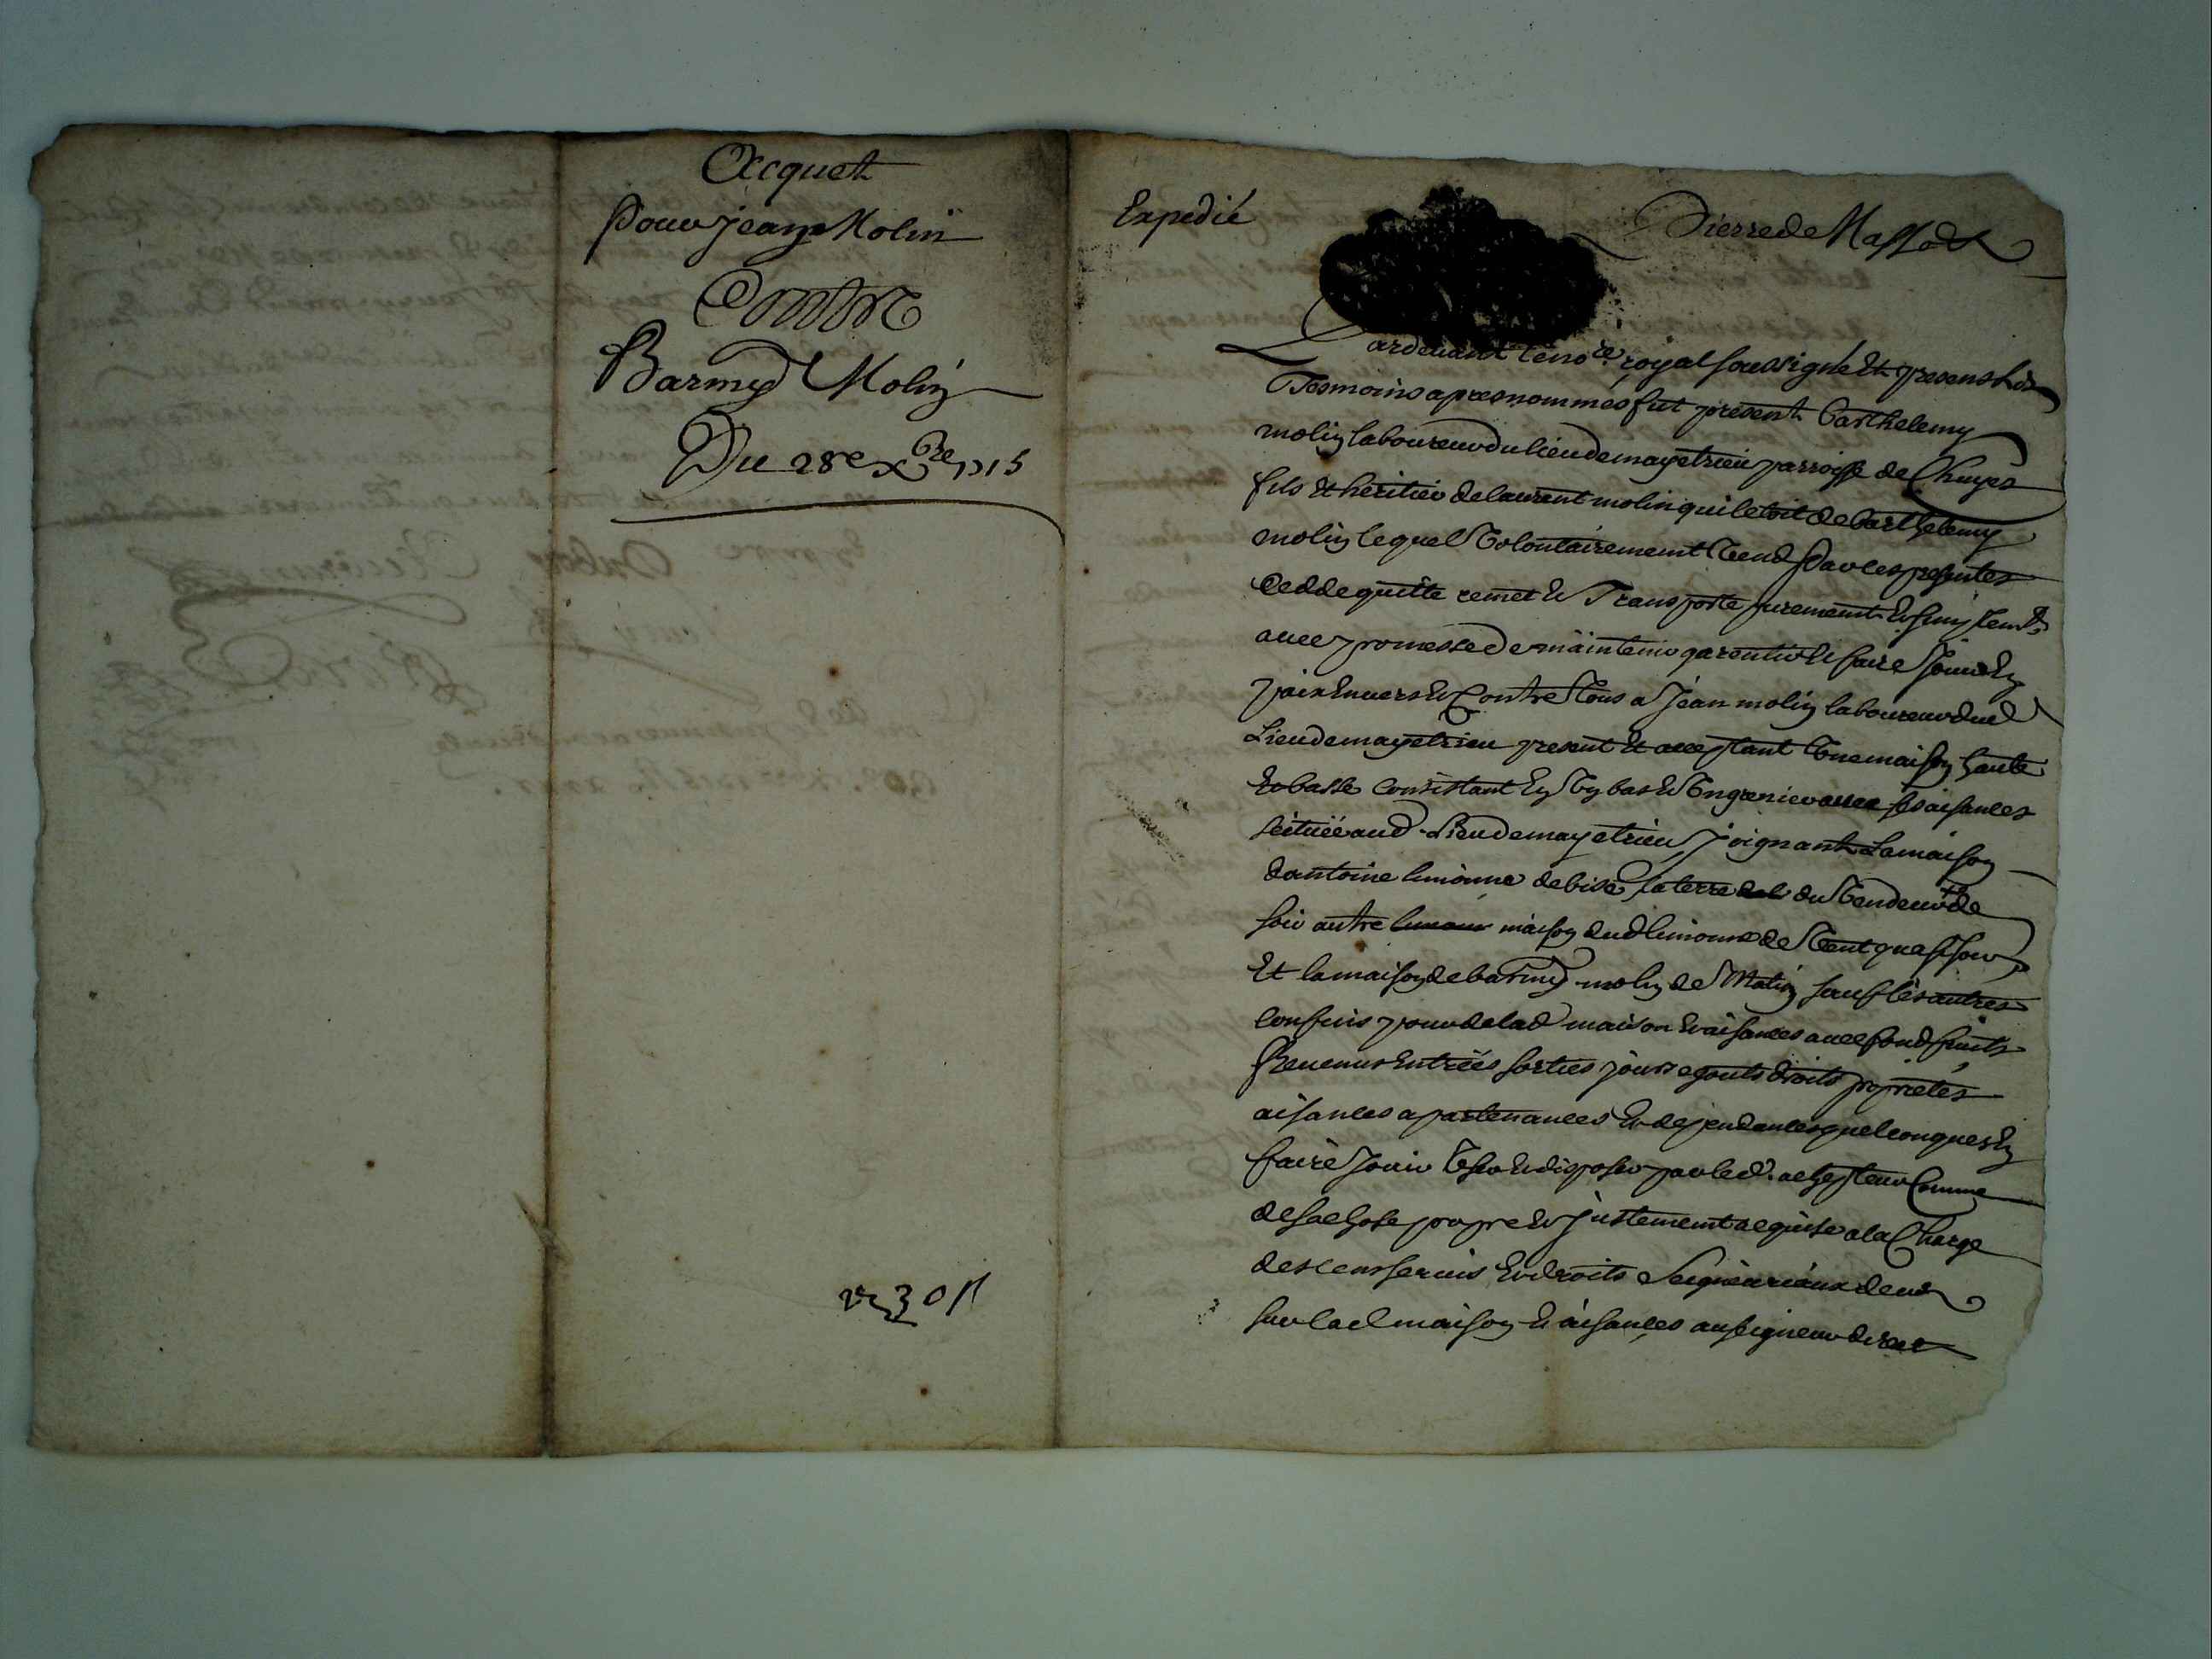 Acquet
Pour jean Molin
Contre
Barmy Molin
Du 28e xbre 1715
Expedié
Pierre de
Pardevant le no.re royal soussigné Et presens les
Tesmoins apres nommés fut present barthelemy
molin laboureur du lieu de mayetrieu parroisse de Chuyes
fils Et heritier de laurent molin qui letoit de barthelemy
molin lequel volontairement vend par les presentes
Cedde quitte remet Et Transporte purement Et simplemt
avec promesse de maintenir garentir Et faire jouir En
paix Envers Et Contre tous a jean molin laboureur dud
Lieu de mayetrieu present Et acceptant Une maison haute
Et basse Consistant En Un bas Et Un grenier avec ses aisances
scituée aud. Lieu de mayetrieu joignant La maison
dantoine limonne de bise, la terre du Vendeur de
soir autre maison dud limonne de Vent
Et la maison de barmy molin de Matin sauf les autres
confins pour de lad maison Et aisances avec fond fruits
Revenus Entrées sorties jours egouts droits proprietés
aisances apartenances Et dependances quelconques En
faire jouir User Et disposer par led. achepteur Comme
de sa chose propre Et justement acquise a la Charge
des cens servis Et droits Seigneuriaux deus
sur lad maison Et aisances au seigneur direct